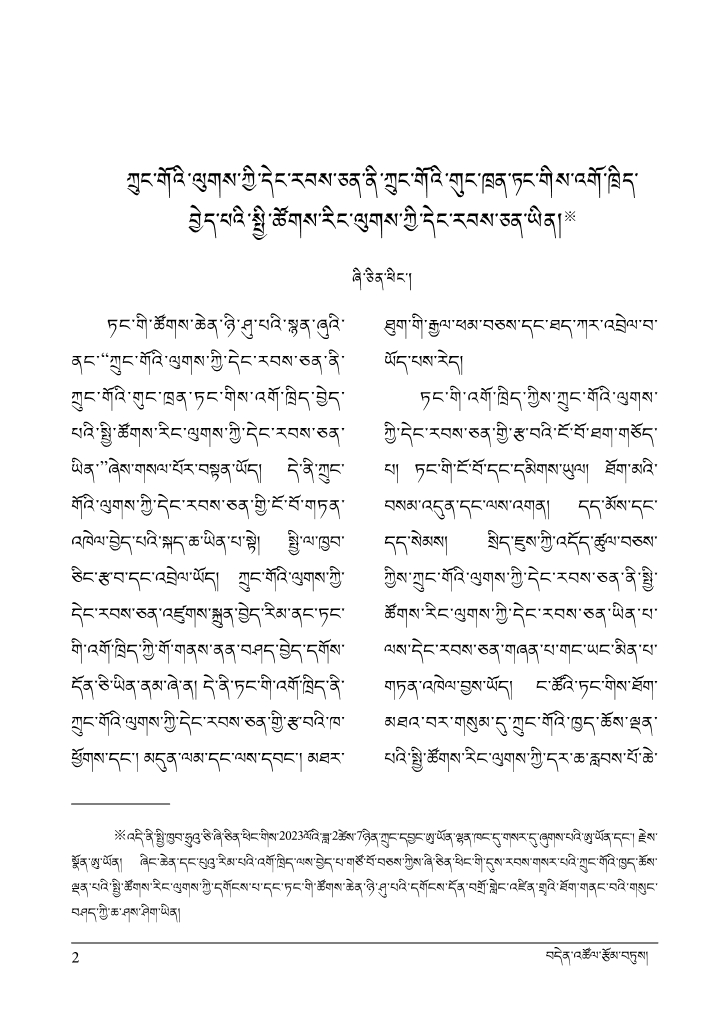 ཀྲུང་གོའི་ལུགས་ཀྱི་དེང་རབས་ཅན་ནི་ཀྲུང་གོའི་གུང་ཁྲན་ཏང་གིས་འགོ་ཁྲིད་
བྱེད་པའི་སྤྱི་ཚོགས་རིང་ལུགས་ཀྱི་དེང་རབས་ཅན་ཡིན།※
ཞི་ཅིན་ཕིང་།
ཏང་གི་ཚོགས་ཆེན་ཉི་ཤུ་པའི་སྙན་ཞུའི་
ནང་“ཀྲུང་གོའི་ལུགས་ཀྱི་དེང་རབས་ཅན་ནི་
ཀྲུང་གོའི་གུང་ཁྲན་ཏང་གིས་འགོ་ཁྲིད་བྱེད་
པའི་སྤྱི་ཚོགས་རིང་ལུགས་ཀྱི་དེང་རབས་ཅན་
ཡིན་”ཞེས་གསལ་པོར་བསྟན་ཡོད། དེ་ནི་ཀྲུང་
གོའི་ལུགས་ཀྱི་དེང་རབས་ཅན་གྱི་ངོ་བོ་གཏན་
འཁེལ་བྱེད་པའི་སྐད་ཆ་ཡིན་པ་སྟེ། སྤྱི་ལ་ཁྱབ་
ཅིང་རྩ་བ་དང་འབྲེལ་ཡོད། ཀྲུང་གོའི་ལུགས་ཀྱི་
དེང་རབས་ཅན་འཛུགས་སྐྲུན་བྱེད་རིམ་ནང་ཏང་
གི་འགོ་ཁྲིད་ཀྱི་གོ་གནས་ནན་བཤད་བྱེད་དགོས་
དོན་ཅི་ཡིན་ནམ་ཞེ་ན། དེ་ནི་ཏང་གི་འགོ་ཁྲིད་ནི་
ཀྲུང་གོའི་ལུགས་ཀྱི་དེང་རབས་ཅན་གྱི་རྩ་བའི་ཁ་
ཕྱོགས་དང་། མདུན་ལམ་དང་ལས་དབང་། མཐར་
ཐུག་གི་རྒྱལ་ཕམ་བཅས་དང་ཐད་ཀར་འབྲེལ་བ་
ཡོད་པས་རེད།
ཏང་གི་འགོ་ཁྲིད་ཀྱིས་ཀྲུང་གོའི་ལུགས་
ཀྱི་དེང་རབས་ཅན་གྱི་རྩ་བའི་ངོ་བོ་ཐག་གཅོད་
པ། ཏང་གི་ངོ་བོ་དང་དམིགས་ཡུལ། ཐོག་མའི་
བསམ་འདུན་དང་ལས་འགན། དད་མོས་དང་
དད་སེམས། སྲིད་ཇུས་ཀྱི་འདོད་ཚུལ་བཅས་
ཀྱིས་ཀྲུང་གོའི་ལུགས་ཀྱི་དེང་རབས་ཅན་ནི་སྤྱི་
ཚོགས་རིང་ལུགས་ཀྱི་དེང་རབས་ཅན་ཡིན་པ་
ལས་དེང་རབས་ཅན་གཞན་པ་གང་ཡང་མིན་པ་
གཏན་འཁེལ་བྱས་ཡོད། ང་ཚོའི་ཏང་གིས་ཐོག་
མཐའ་བར་གསུམ་དུ་ཀྲུང་གོའི་ཁྱད་ཆོས་ལྡན་
པའི་སྤྱི་ཚོགས་རིང་ལུགས་ཀྱི་དར་ཆ་རླབས་པོ་ཆེ་
※འདི་ནི་སྤྱི་ཁྱབ་ཧྲུའུ་ཅི་ཞི་ཅིན་ཕིང་གིས་2023ལོའི་ཟླ་2ཚེས་7ཉིན་ཀྲུང་དབྱང་ཨུ་ཡོན་ལྷན་ཁང་དུ་གསར་དུ་ཞུགས་པའི་ཨུ་ཡོན་དང་། རྗེས་
སྣོན་ཨུ་ཡོན། ཞིང་ཆེན་དང་པུའུ་རིམ་པའི་འགོ་ཁྲིད་ལས་བྱེད་པ་གཙོ་བོ་བཅས་ཀྱིས་ཞི་ཅིན་ཕིང་གི་དུས་རབས་གསར་པའི་ཀྲུང་གོའི་ཁྱད་ཆོས་
ལྡན་པའི་སྤྱི་ཚོགས་རིང་ལུགས་ཀྱི་དགོངས་པ་དང་ཏང་གི་ཚོགས་ཆེན་ཉི་ཤུ་པའི་དགོངས་དོན་བགྲོ་གླེང་འཛིན་གྲྭའི་ཐོག་གནང་བའི་གསུང་
བཤད་ཀྱི་ཆ་ཤས་ཤིག་ཡིན།
2
བདེན་འཚོལ་རྩོམ་བཏུས།